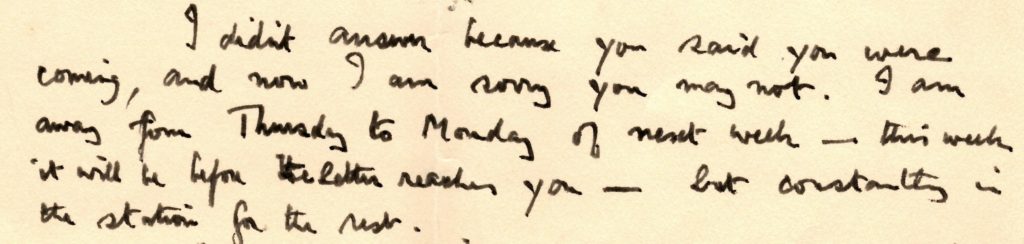 I didn't answer because you said you were
coming, and now I am sorry you may not. I am
away from Thursday to Monday of next week — this week
it will be before the letter reaches you — but constantly in
the station for the rest.